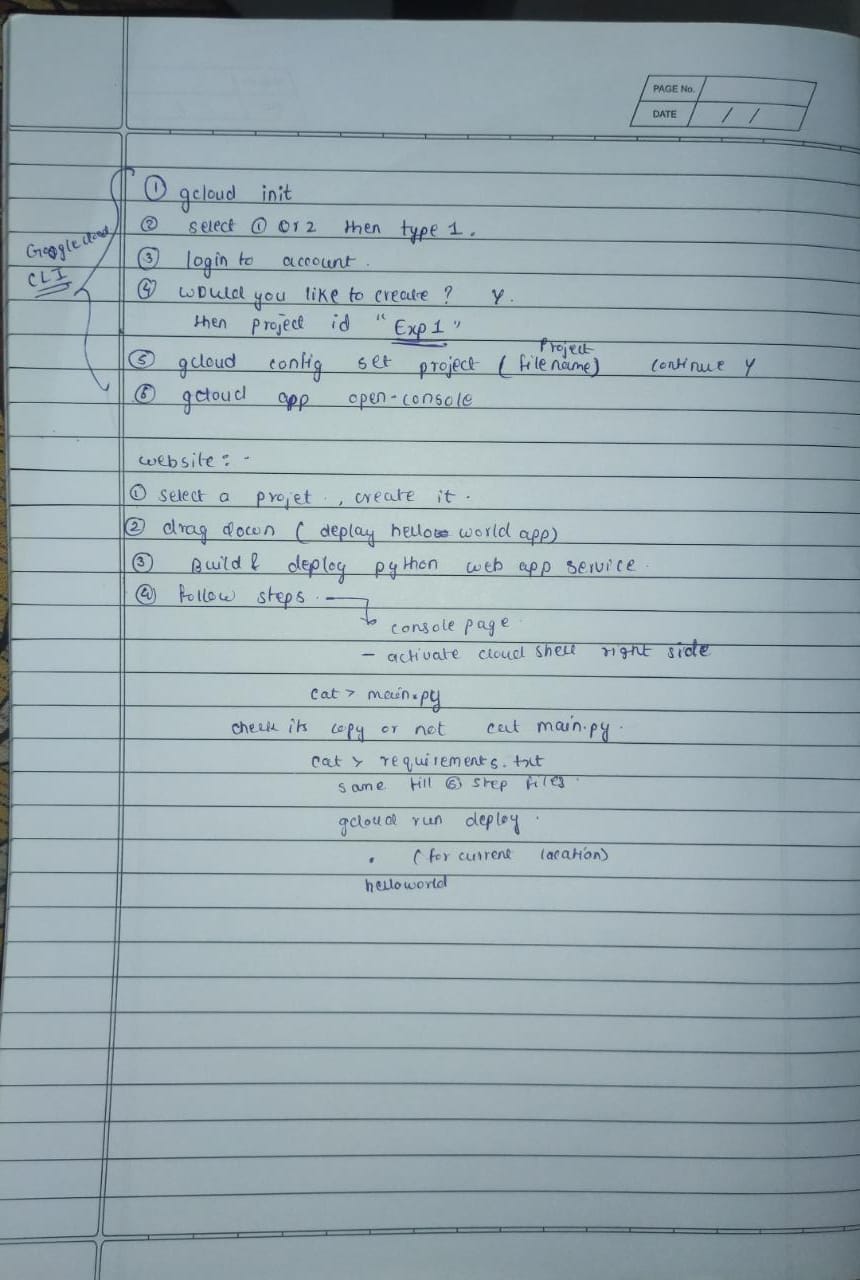 PAGE No.
DATE / /
① gcloud init
② select ① or 2 then type 1.
Google cloud
CLI
③ login to account.
④ would you like to create? Y.
then project id "Exp 1"
Project
⑤ gcloud config set project (filename) continue Y
⑥ gcloud app open-console
website:-
① select a projet., create it.
② drag down (deplay hello world app)
③ Build & deploy python web app service.
④ Follow steps.
console page
- activate cloud shell right side
cat > main.py
check its copy or not cat main.py.
cat > requirements.txt
same till ⑥ step files.
gcloud run deploy.
. (for current location)
helloworld